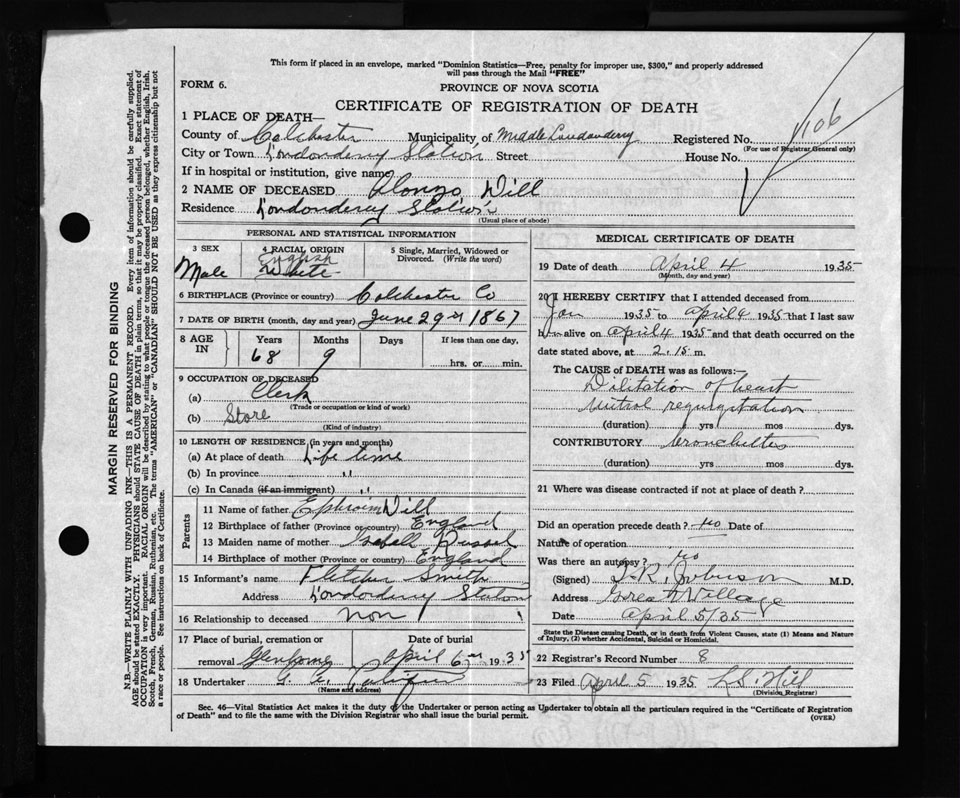 This form if placed in an envelope, marked "Dominion Statistics—Free, penalty for improper use, $300," and properly addressed
will pass through the Mail "FREE"
FORM 6.
PROVINCE OF NOVA SCOTIA
CERTIFICATE OF REGISTRATION OF DEATH
1 PLACE OF DEATH—
County of Colchester Municipality of Middle Londonderry Registered No. 1106
(For use of Registrar General only)
City or Town Londonderry Station Street House No.
If in hospital or institution, give name
2 NAME OF DECEASED Alonzo Dill
Residence Londonderry Station
(Usual place of abode)
PERSONAL AND STATISTICAL INFORMATION
3 SEX 4 RACIAL ORIGIN 5 Single, Married, Widowed or Divorced. (Write the word)
Male English White
6 BIRTHPLACE (Province or country) Colchester Co
7 DATE OF BIRTH (month, day and year) June 29 1867
8 AGE IN Years Months Days If less than one day,
68 9 hrs. or min.
9 OCCUPATION OF DECEASED
(a) Clerk
(Trade or occupation or kind of work)
(b) Store
(Kind of industry)
10 LENGTH OF RESIDENCE (in years and months)
(a) At place of death Life time
(b) In province "
(c) In Canada (if an immigrant) "
Parents
11 Name of father Ephraim Dill
12 Birthplace of father (Province or country) England
13 Maiden name of mother Isabell Russel
14 Birthplace of mother (Province or country) England
15 Informant's name Fletcher Smith
Address Londonderry Station
16 Relationship to deceased non
17 Place of burial, cremation or removal Date of burial
April 6 1935
18 Undertaker G. E.
(Name and address)
MEDICAL CERTIFICATE OF DEATH
19 Date of death April 4 1935
(Month, day and year)
20 I HEREBY CERTIFY that I attended deceased from
Jan 1935 to April 4 1935 that I last saw
him alive on April 4 1935 and that death occurred on
date stated above, at 2.15 m.
The CAUSE of DEATH was as follows:—
Dilitation of heart
mitral regurgitation
(duration) yrs mos. dys.
CONTRIBUTORY Bronchitis
(duration) yrs. mos. dys.
21 Where was disease contracted if not at place of death?
Did an operation precede death? no Date of
Nature of operation
Was there an autopsy? no
(Signed) T. R. Johnson M.D.
Address Great Village
Date April 5/35
State the Disease causing Death, or in death from Violent Causes, state (1) Means and Nature
of Injury, (2) whether Accidental, Suicidal or Homicidal.
22 Registrar's Record Number 8
23 Filed April 5 1935 L.S. Hill
(Division Registrar)
Sec. 46—Vital Statistics Act makes it the duty of the Undertaker or person acting as Undertaker to obtain all the particulars required in the "Certificate of Registration
of Death" and to file the same with the Division Registrar who shall issue the burial permit.
(OVER)
MARGIN RESERVED FOR BINDING
N.B.—WRITE PLAINLY WITH UNFADING INK—THIS IS A PERMANENT RECORD. Every item of information should be carefully supplied.
AGE should be stated EXACTLY. PHYSICIANS should STATE CAUSE OF DEATH in plain terms, so that it may be properly classified. Exact statement of
OCCUPATION is very important. RACIAL ORIGIN will be described by stating to what people or tongue the deceased person belonged, whether English, Irish,
Scotch, French, German, Russian, Ruthenian, etc. The terms "AMERICAN" or "CANADIAN" SHOULD NOT BE USED as they express citizenship but not
a race or people. See instructions on back of Certificate.